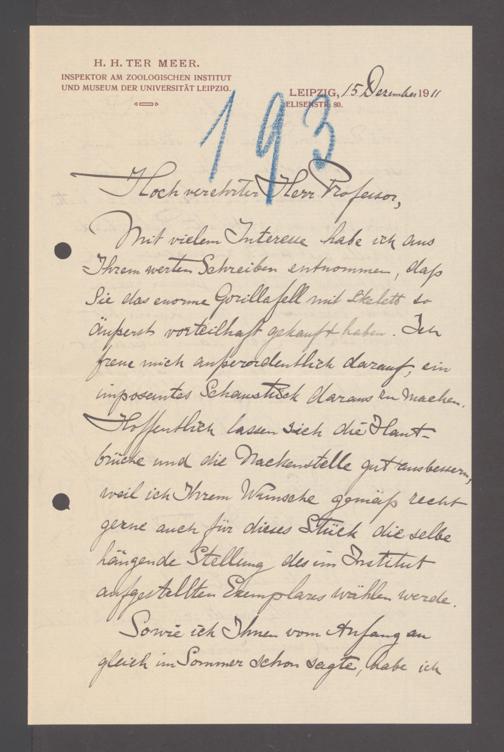 H. H. TER MEER.
INSPEKTOR AM ZOOLOGISCHEN INSTITUT
UND MUSEUM DER UNIVERSITÄT LEIPZIG.
LEIPZIG, 15 Dezember 1911
ELISENSTR. 80.
193
Hochverehrter Herr Professor,
Mit vielem Interesse habe ich aus
Ihrem werten Schreiben entnommen, daß
Sie das enorme Gorillafell mit Skelett so
äußerst vorteilhaft gekauft haben. Ich
freue mich außerordentlich darauf, ein
imposantes Schaustück daraus zu machen.
Hoffentlich lassen sich die Haut-
brüche und die Nackenstelle gut ausbessern,
weil ich Ihrem Wunsche gemäß recht
gerne auch für dieses Stück dieselbe
hängende Stellung des im Institut
aufgestellten Exemplares wählen werde.
Sowie ich Ihnen vom Anfang an
gleich im Sommer schon sagte, habe ich